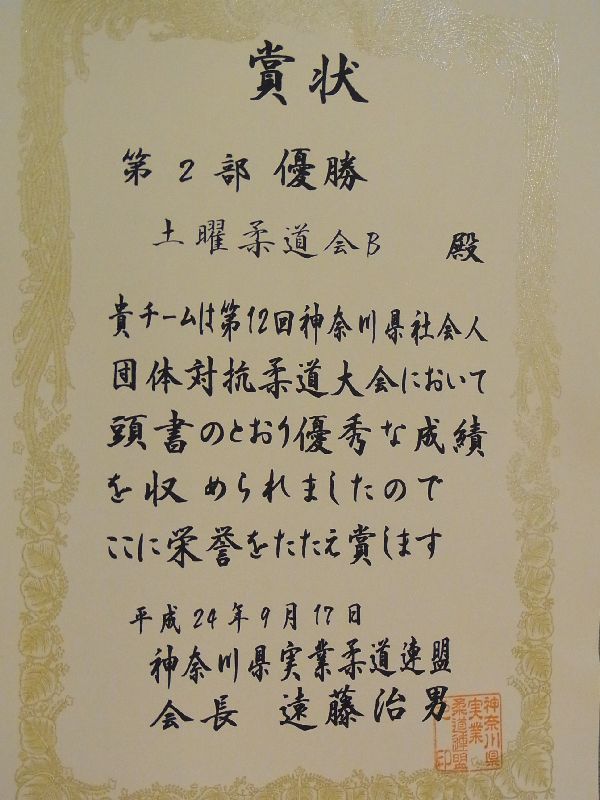 賞状
第2部 優勝
土曜柔道会B 殿
貴チームは第12回神奈川県社会人
団体対抗柔道大会において
頭書のとおり優秀な成績
を収められましたので
ここに栄誉をたたえ賞します
平成24年9月17日
神奈川県実業柔道連盟
会長 遠藤治男
神奈川県
実業
柔道連盟
印